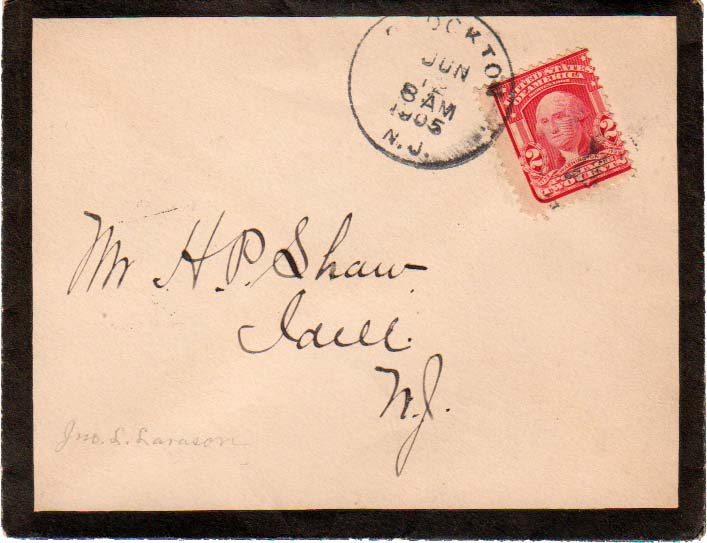 OCKTO
JUN
12
8 AM
1905
N.J.
UNITED STATES
OF AMERICA
2 2
TWO CENTS
Mr H. P. Shaw
Idell.
N.J.
Jno. L. Larason